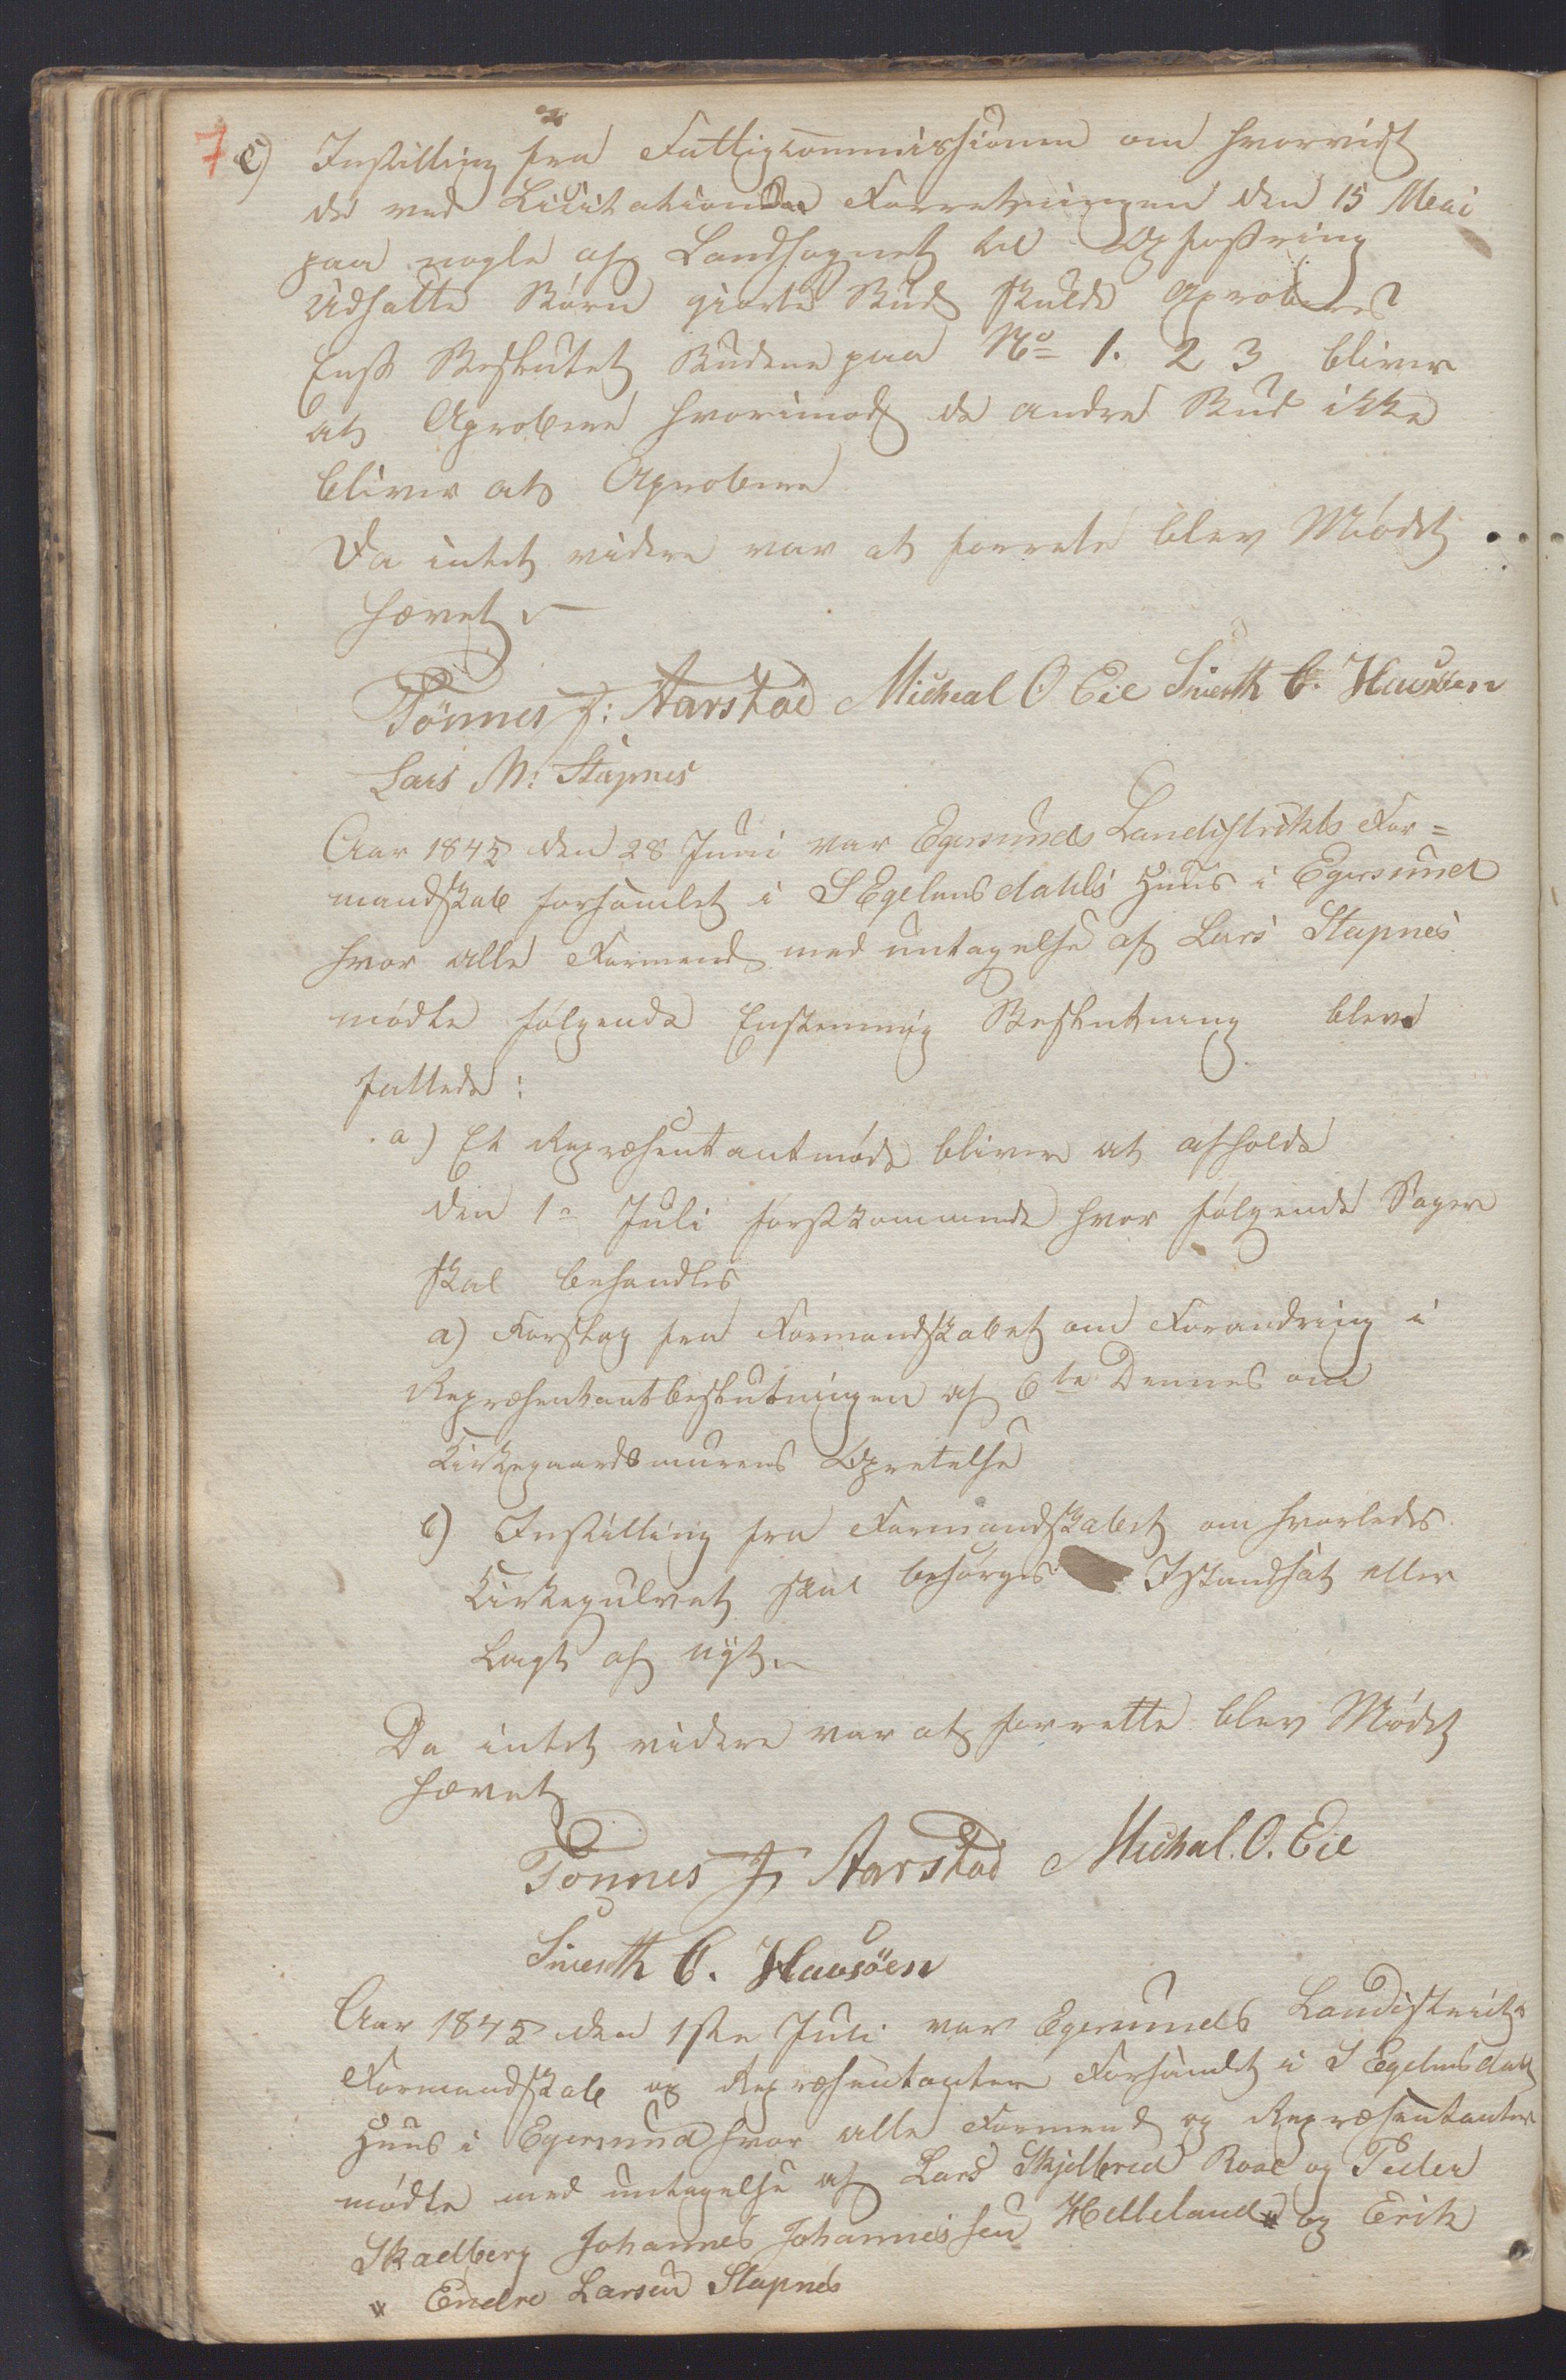 7 c) Instilling fra Fattigcommissionen om hvorvidt
de ved Licitations Forretningen den 15 Mai
paa nogle af Landsognet til Opfostring
Udsatte Børn giorte Bud skulde Aproberes
Enst Besluttet Budene paa No 1. 2 3 bliver
at Aprobere hvorimod de andre Bud ikke
bliver at Aprobere
Da intet videre var at forrete blev Mødet
hævet
Tönnes J: Aarstad Micheal O Eie Siverth C. Hausöen
Lars M: Stapnes
Aar 1845 den 28 Juni var Egersunds Landistrikts For=
mandskab forsamlet i S Egelansdahls Huus i Egersund
hvor alle Formænd med untagelse af Lars Stapnes
mødte følgende Enstemmig Beslutning blev
fattede:
a) Et Repræsentantmøde bliver at afholde
den 1e Juli førstkommende hvor følgende Sager
skal behandles
a) Forslag fra Formandskabet om Forandring i
Repræsentantbeslutningen af 6te Dennes om
Kirkegaardsmurens Opretelse
b) Instilling fra Formandskabet om hvorledes
Kirkegulvet skal besørges Istandsat eller
Lagt af nyt.
Da intet videre var at forrette blev Mødet
hævet
Tönnes J Aarstad Micheal. O. Eie
Siverth C. Hausöen
Aar 1845 den 1ste Juli var Egersunds Landistrikts
Formandskab og Repræsentanter Forsamlet i S Egelansdahls
Huus i Egersund hvor alle Formænd og Repræsentanter
mødte med untagelse af Lars Skjelbred Roal og Peder
Skadberg Johannes Johannessen Helleland * og Erik
* Endre Larsen Stapnes